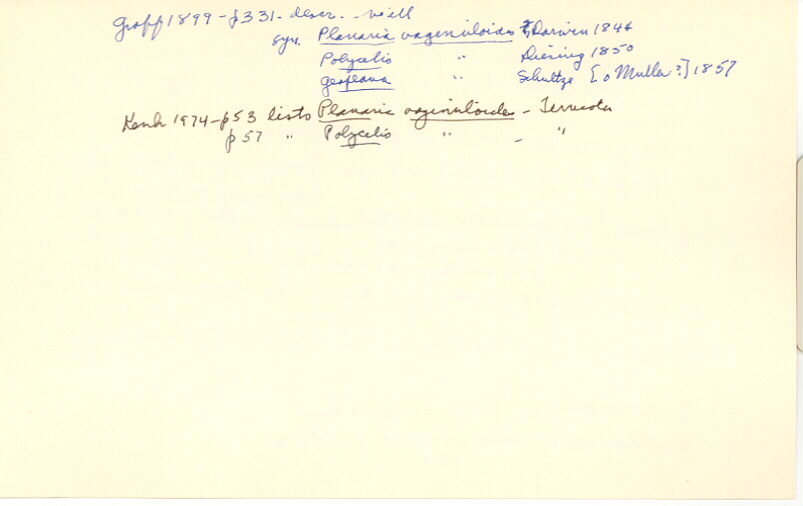 Graff 1899 - p331 - descr. - no ill
syn. Planaria vaginuloides Darwin 1844
Polycelis " Diesing 1850
Geoplana " Schultze [o Muller?] 1857
Kenk 1974 - p53 lists Planaria vaginuloides - Terricola
p57 " Polycelis " - "